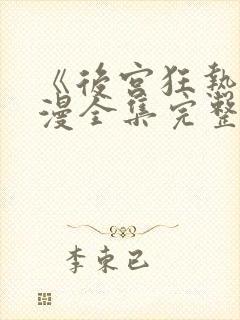 《後宮狂熱
漫全集完整
李東已